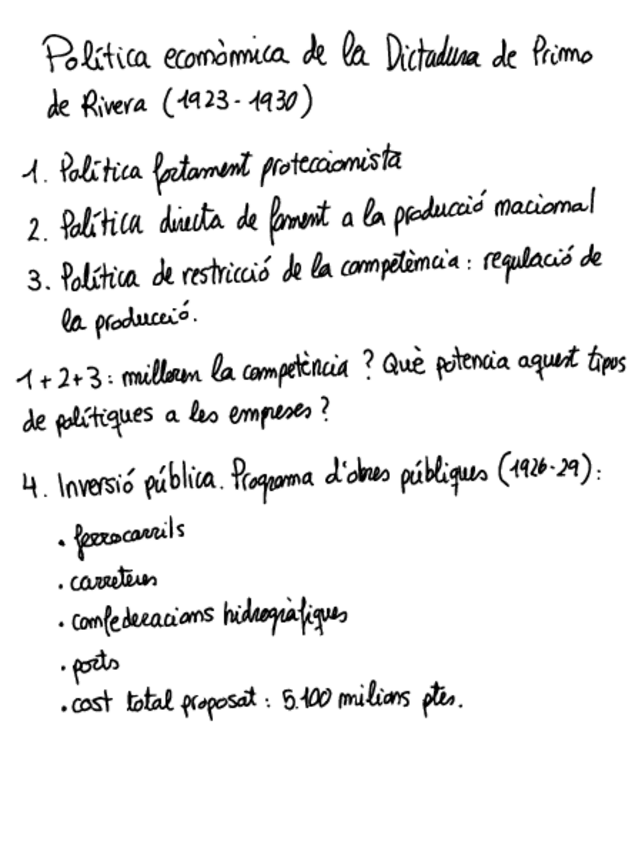 Política econòmica de la Dictadura de Primo
de Rivera (1923-1930)
1. Política fortament proteccionista
2. Política directa de foment a la producció nacional
3. Política de restricció de la competència: regulació de
la producció.
1+2+3: milloren la competència? Què potencia aquest tipus
de polítiques a les empreses?
4. Inversió pública. Programa d'obres públiques (1926-29):
• ferrocarrils
• carreteres
• confederacions hidrogràfiques
• ports
• cost total proposat: 5.100 milions ptes.